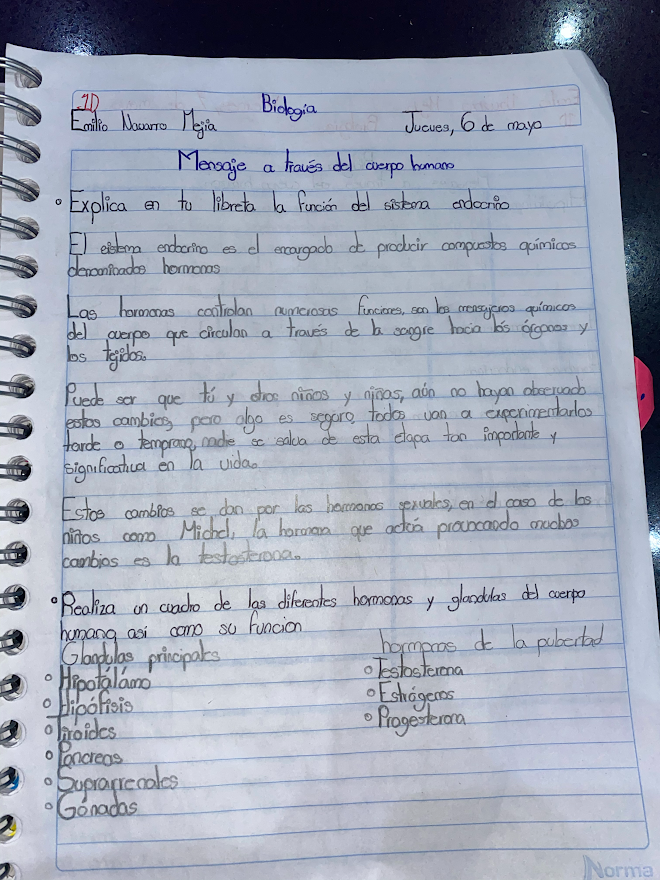 1D
Biología
Emilio Navarro Mejia
Jueves, 6 de mayo
Mensaje a través del cuerpo humano
Explica en tu libreta la función del sistema endocrino
El sistema endocrino es el encargado de producir compuestos químicos
denominados hormonas
Las hormonas controlan numerosas funciones, son los mensajeros químicos
del cuerpo que circulan a través de la sangre hacia los órganos y
los tejidos.
Puede ser que tú y otros niños y niñas, aún no hayan observado
estos cambios, pero algo es seguro, todos van a experimentarlos
tarde o temprano, nadie se salva de esta etapa tan importante y
significativa en la vida.
Estos cambios se dan por las hormonas sexuales, en el caso de los
niños como Michel, la hormon que actúa provocando muchos
cambios es la testosterona.
Realiza un cuadro de las diferentes hormonas y glandulas del cuerpo
humano, así como su función
Glandulas principales
hormonas de la pubertad
Hipotálamo
Testosterona
Hipófisis
Estrógenos
Tiroides
Progesterona
Páncreas
Suprarrenales
Gónadas
Norma